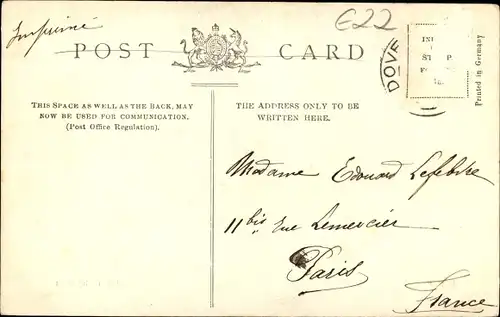 Imprimé
E22
POST CARD
DOVE
Printed in Germany
THIS SPACE AS WELL AS THE BACK, MAY
NOW BE USED FOR COMMUNICATION.
(Post Office Regulation).
THE ADDRESS ONLY TO BE
WRITTEN HERE.
Madame Edouard Lefebvre
11 bis Rue Lemercier
Paris
France